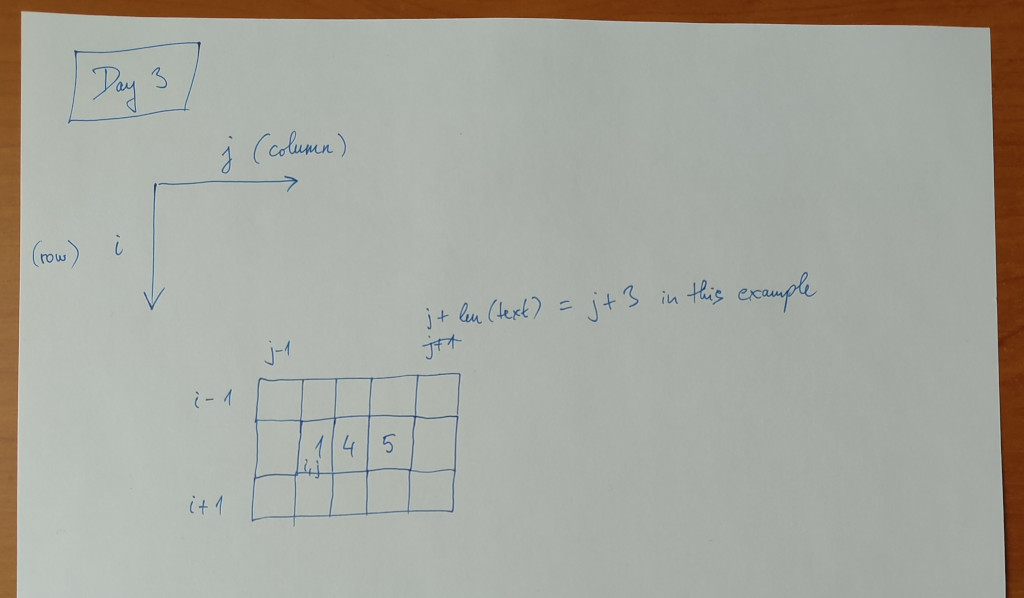 Day 3
j (column)
(row) i
j + len (text) = j+3 in this example
j+1
j-1
i-1
1 4 5
i,j
i+1